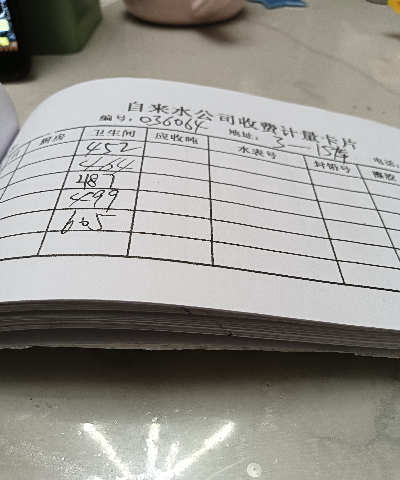 自来水公司收费计量卡片
编号: 036064 地址: 3-15栋 电话:
厨房 卫生间 应收吨 水表号 封铅号
452
464
487
499
605